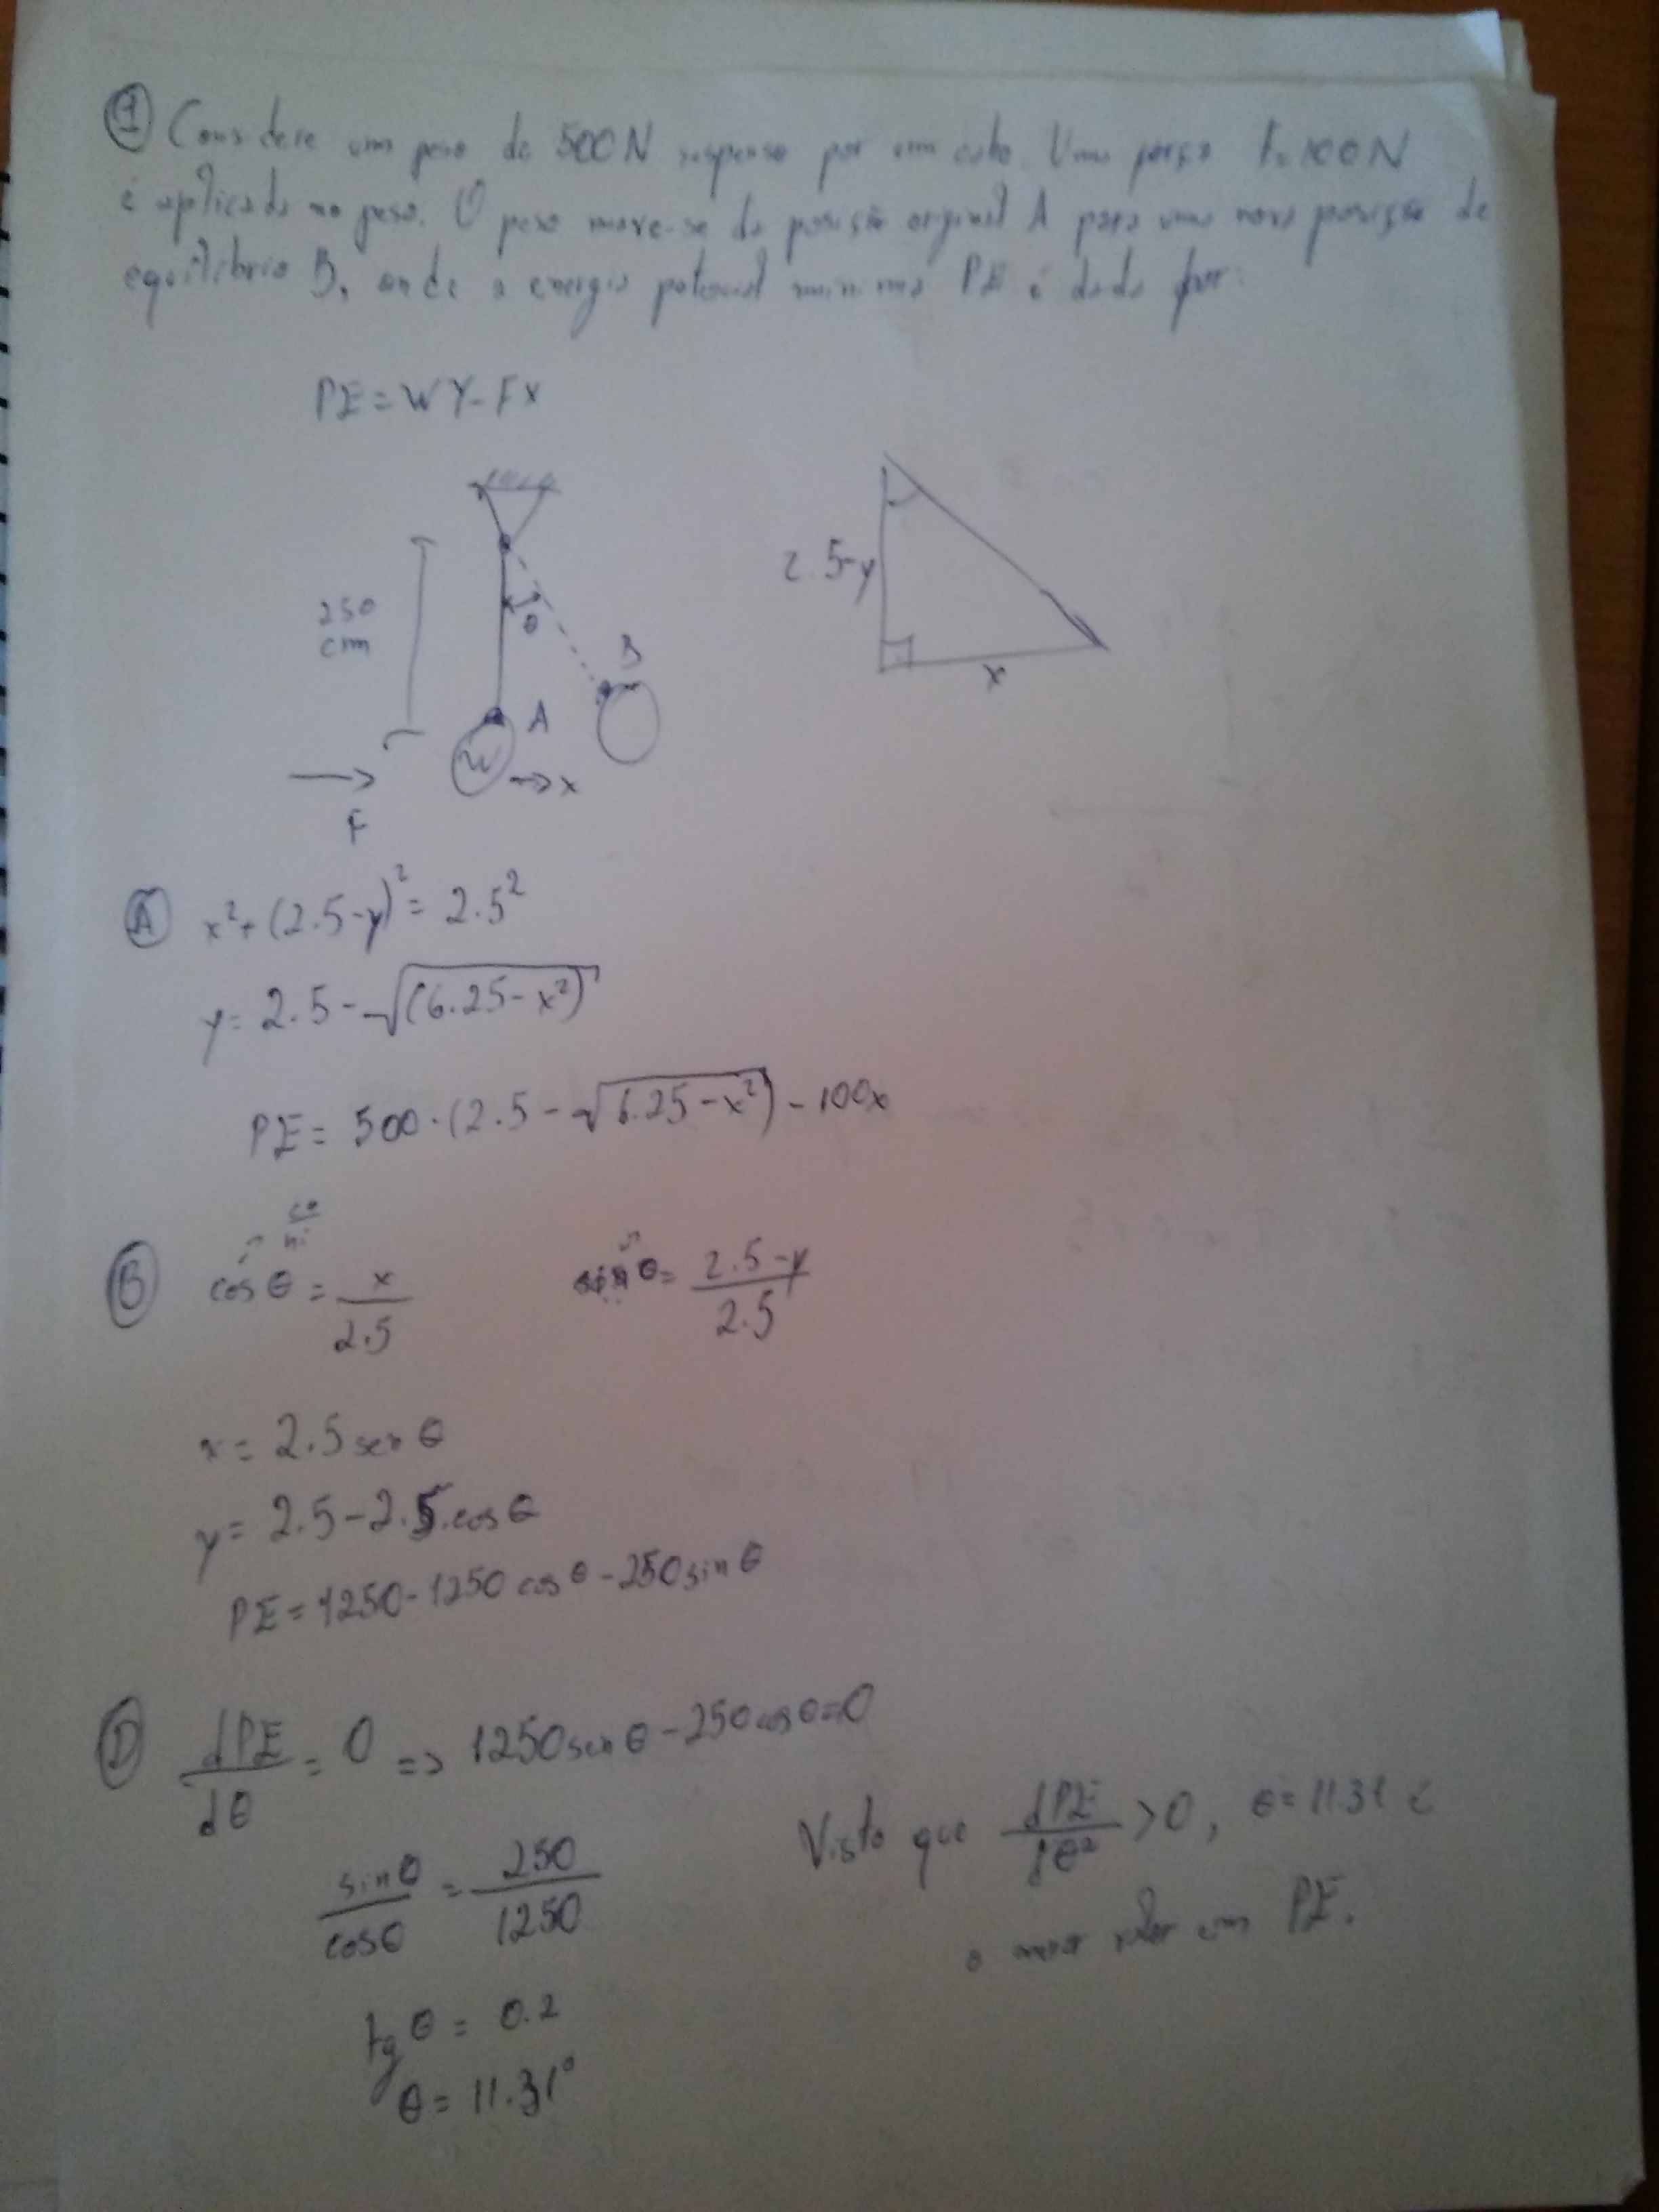 1 Considere um peso de 500N suspenso por um cabo. Uma força F=100N
é aplicada no peso. O peso move-se da posição orginal A para uma nova posição de
equilíbrio B, onde a energia potencial minima PE é dada por:
PE = WY - FX
250
cm
θ
B
A
W
→x
F
2.5-y
x
A x²+(2.5-y)² = 2.5²
y = 2.5-√(6.25-x²)
PE = 500·(2.5-√6.25-x²) - 100x
co
hi
B cos θ = x/2.5
sin θ = 2.5-y/2.5
x = 2.5 sen θ
y = 2.5-2.5.cos θ
PE = 1250-1250 cos θ - 250 sin θ
D dPE/dθ = 0 => 1250 sen θ - 250 cos θ = 0
sin θ/cos θ = 250/1250
tg θ = 0.2
θ = 11.31°
Visto que dPE/dθ² > 0, θ = 11.31 é
o menor valor em PE.